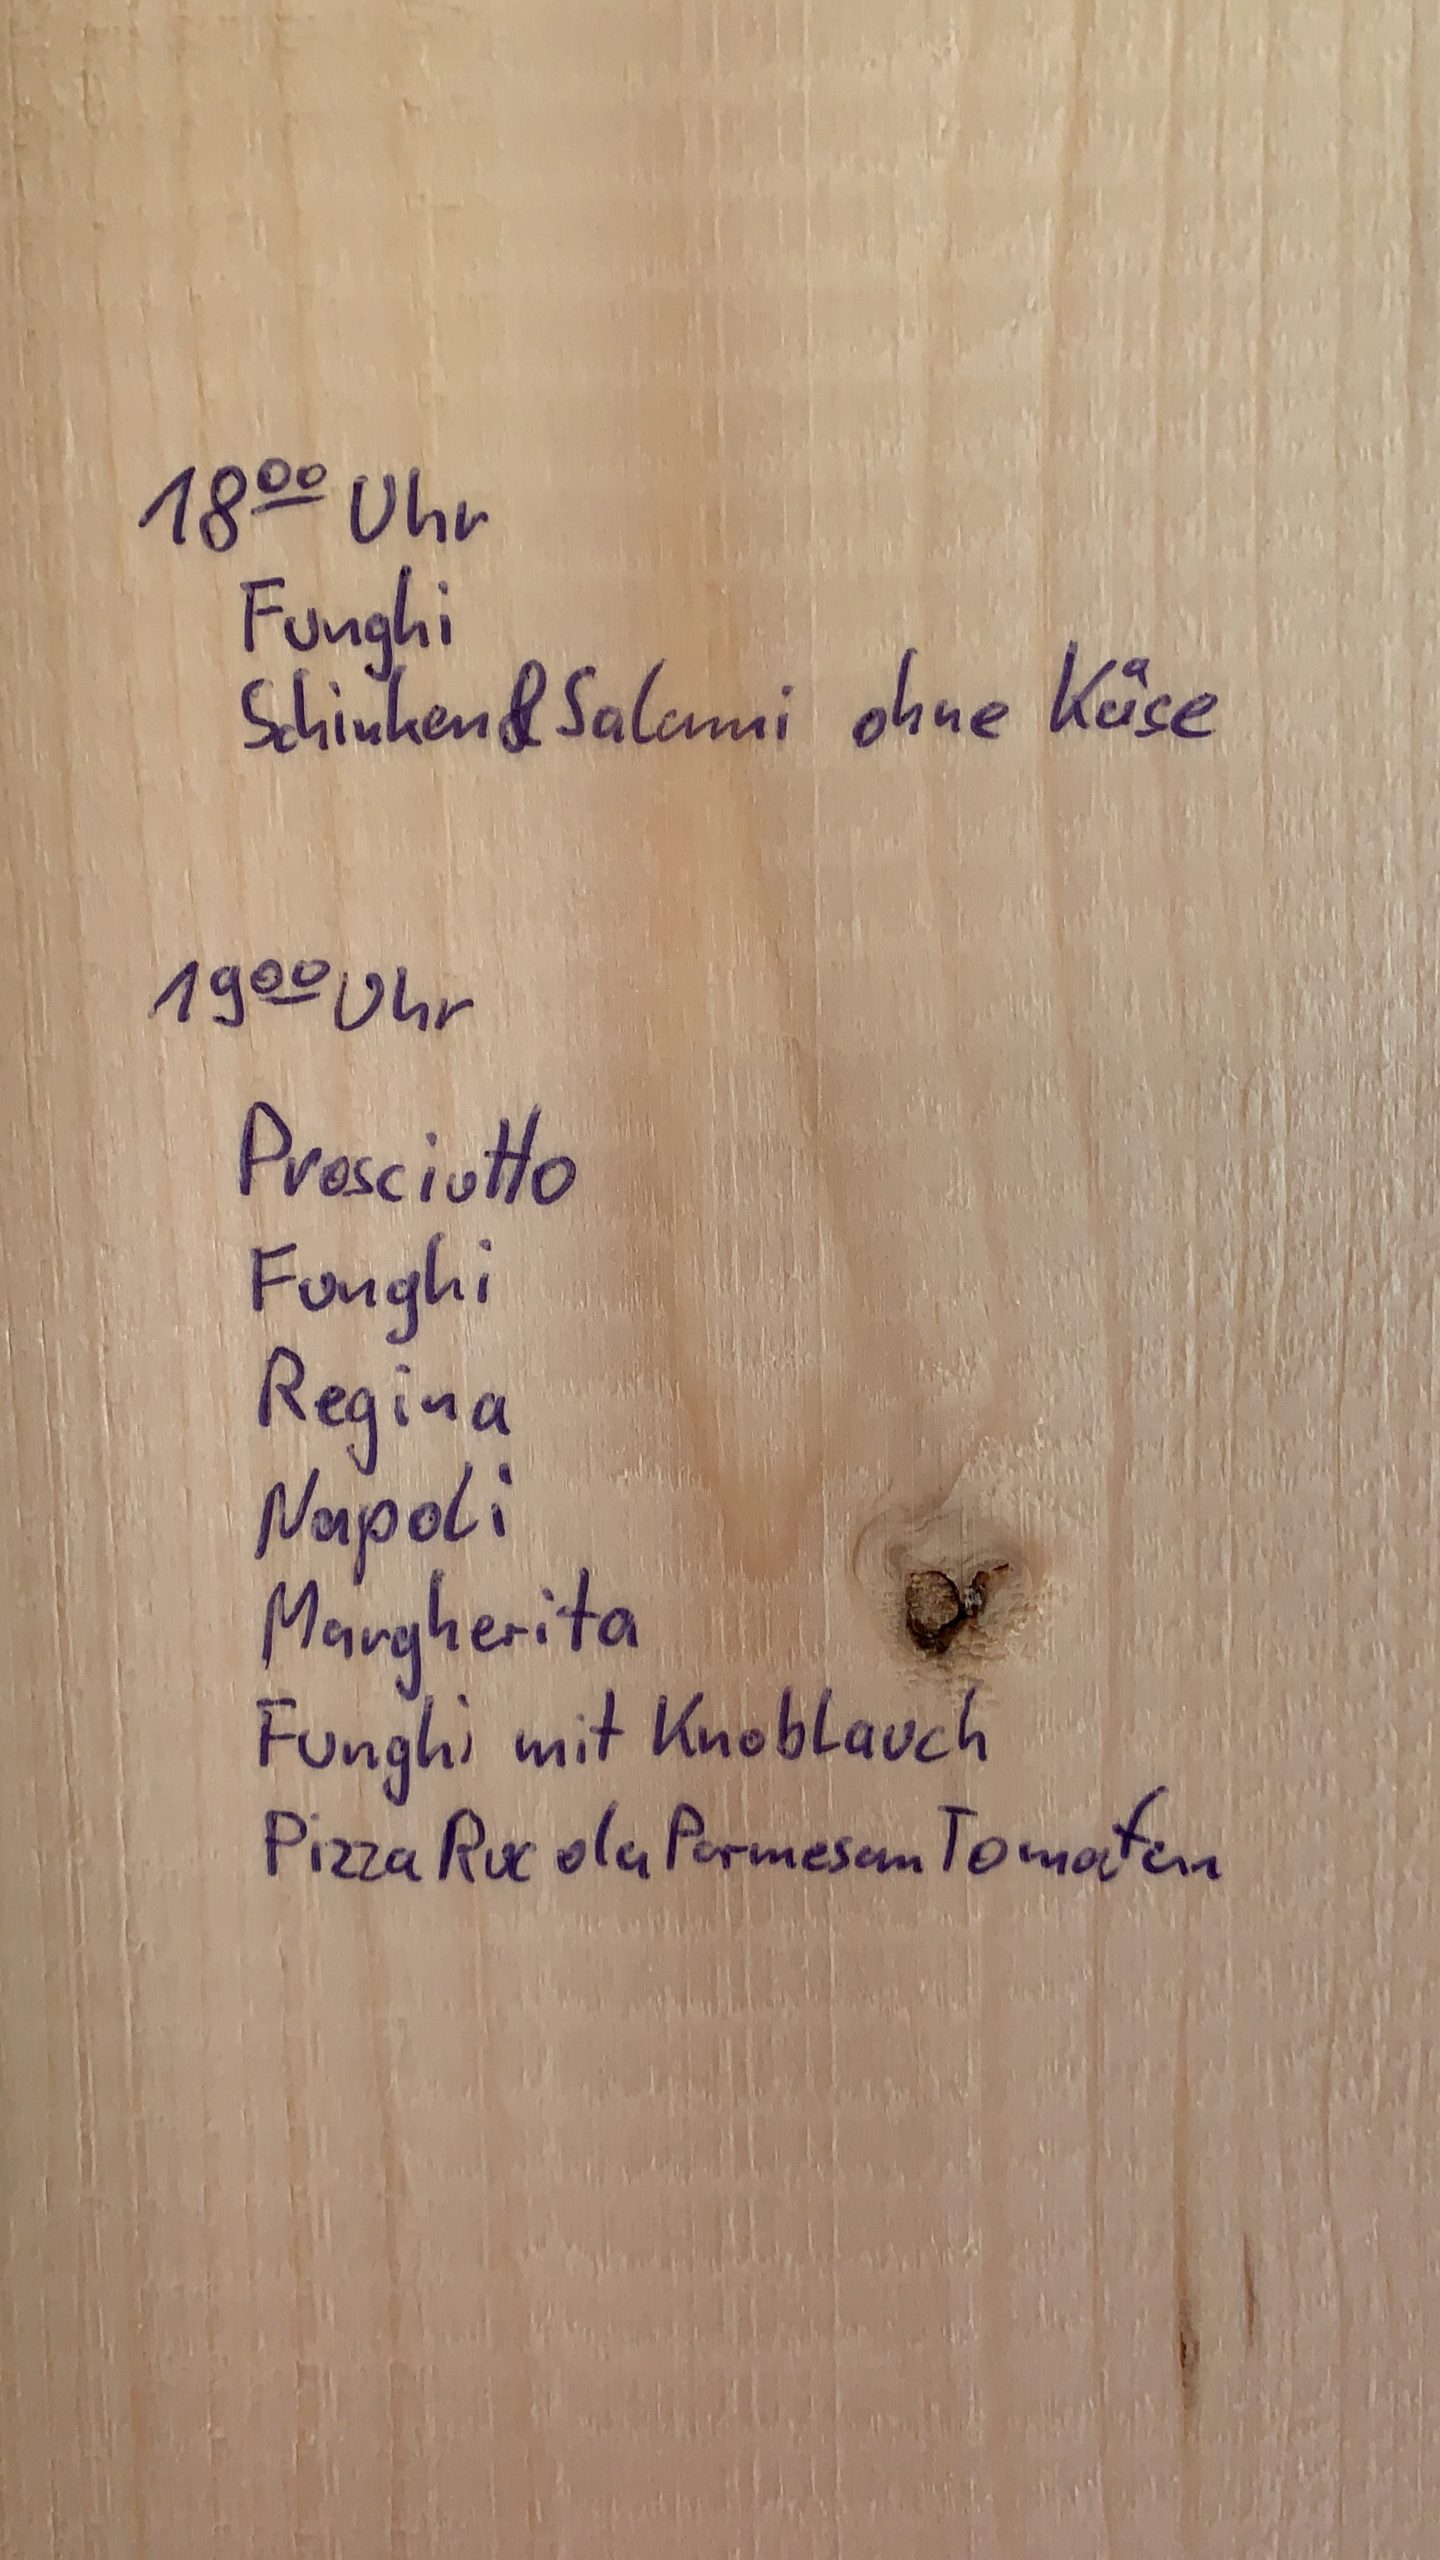 18⁰⁰ Uhr
Funghi
Schinken & Salami ohne Käse
19⁰⁰ Uhr
Prosciutto
Funghi
Regina
Napoli
Margherita
Funghi mit Knoblauch
Pizza Rucola Parmesan Tomaten